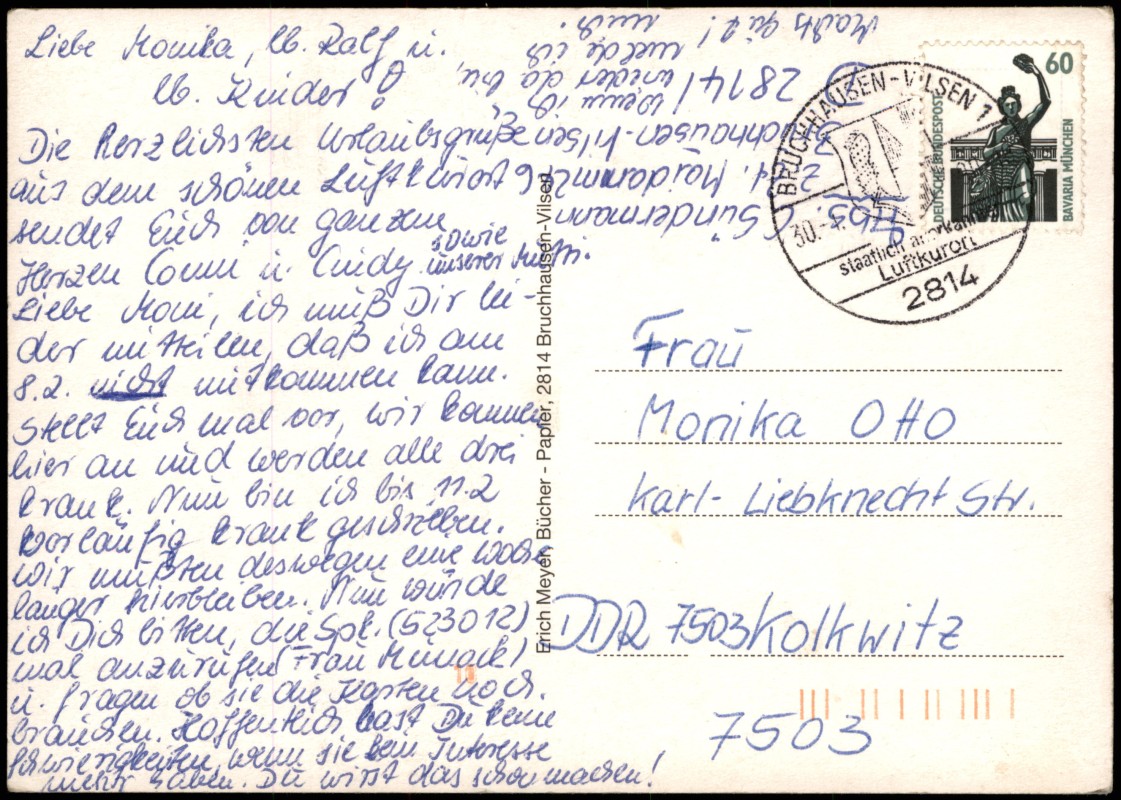 Liebe Monika, lb. Ralf u.
lb. Kinder!
Die herzlichsten Urlaubsgrüße
aus dem schönen Luftkurort
sendet Euch von ganzen
Herzen Conni u. Cindy sowie unserer Mutti.
Liebe Moni, ich muß Dir lei-
der mitteilen, daß ich am
8.2. nicht mitkommen kann.
Stellt Euch mal vor, wir kommen
hier an und werden alle drei
krank. Nun bin ich bis 11.2
vorläufig krank geschrieben.
Wir mußten deswegen eine Woche
länger hierbleiben. Nun würde
ich Dich bitten, die Spk. (523012)
mal anzurufen (Frau Munack)
u. fragen ob sie die Karten noch
brauchen. Hoffentlich hast Du keine
Schwierigkeiten, wenn sie kein Interesse
mehr haben. Du wirst das schon machen!
Wenn ich
wieder da bin,
melde ich
mich.
Machts gut!
Abs. C. Sündermann
Maidamm 26
2814 Bruchhausen-Vilsen
2814
Erich Meyer, Bücher - Papier, 2814 Bruchhausen-Vilsen
BRUCHHAUSEN-VILSEN 1
30.
staatlich anerkannter
Luftkurort
2814
60
DEUTSCHE BUNDESPOST
BAVARIA MÜNCHEN
Frau
Monika Otto
Karl-Liebknecht Str.
DDR 7503 Kolkwitz
7503